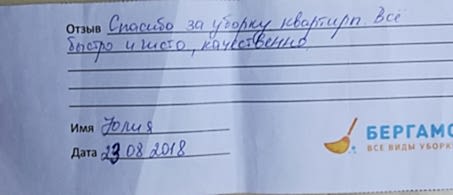 Отзыв Спасибо за уборку квартиры. Всё
быстро и чисто, качественно.
Имя Юлия
Дата 23 08 2018
БЕРГАМО
ВСЕ ВИДЫ УБОРК